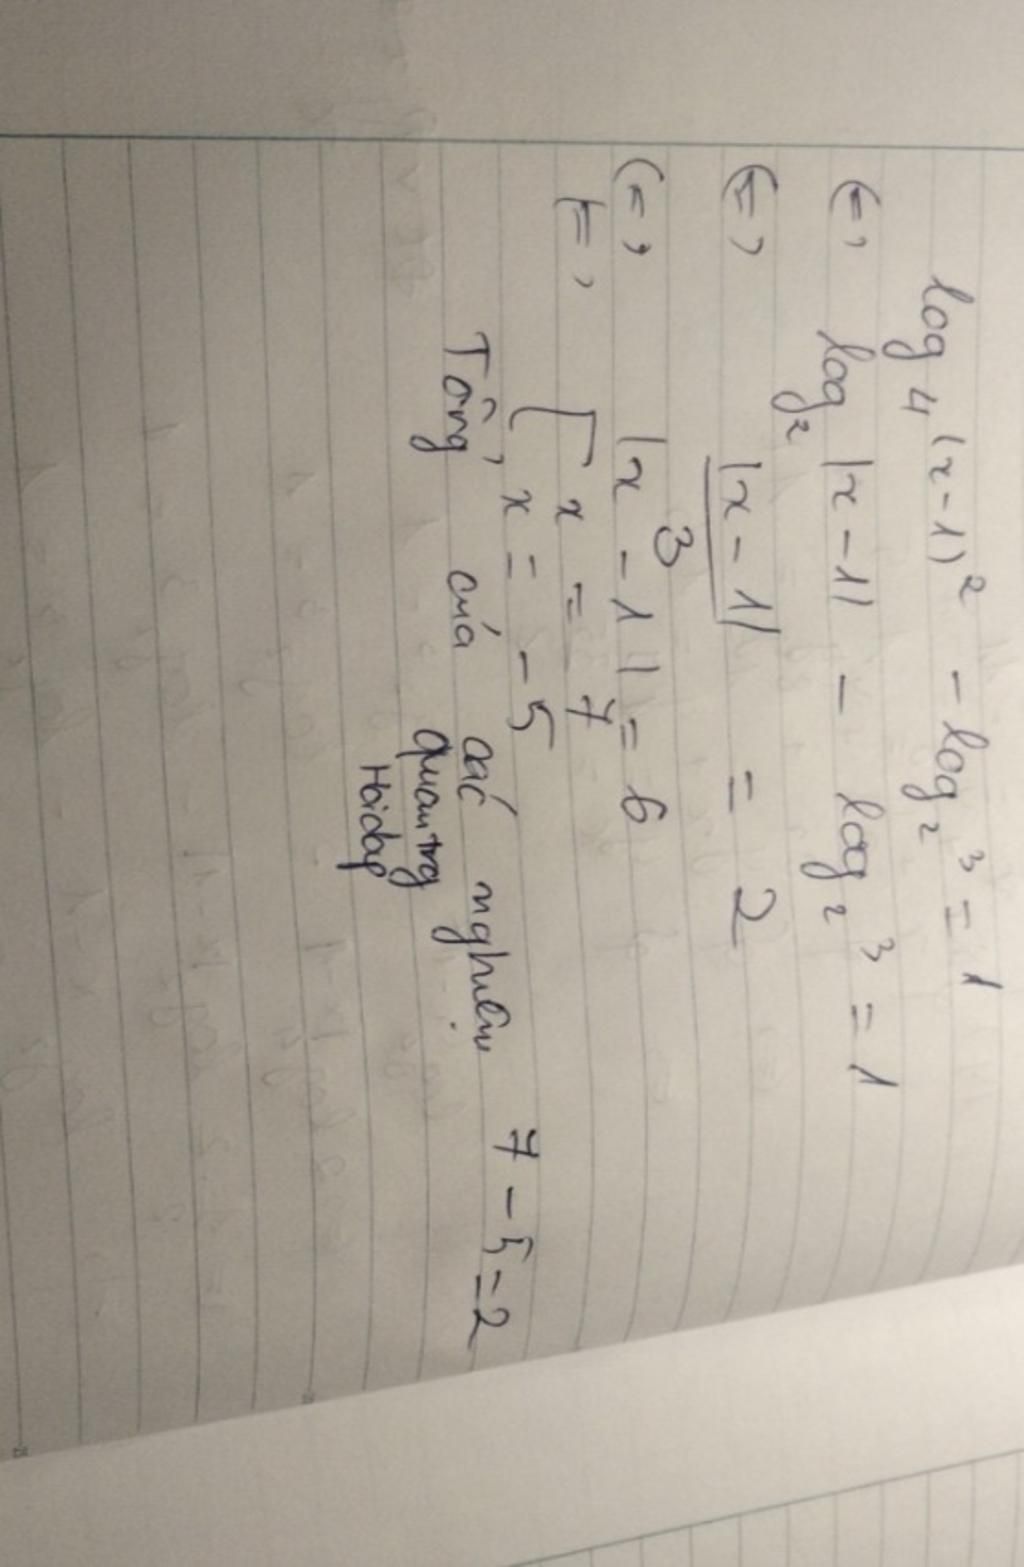 log₄ (x-1)² - log₂ 3 = 1
(=) log₂ |x-1| - log₂ 3 = 1
(=) |x-1| / 3 = 2
(=) |x-1| = 6
(=) [ x = 7
x = -5
Tổng của các nghiệm 7 - 5 = 2
quantrg
Hoidap